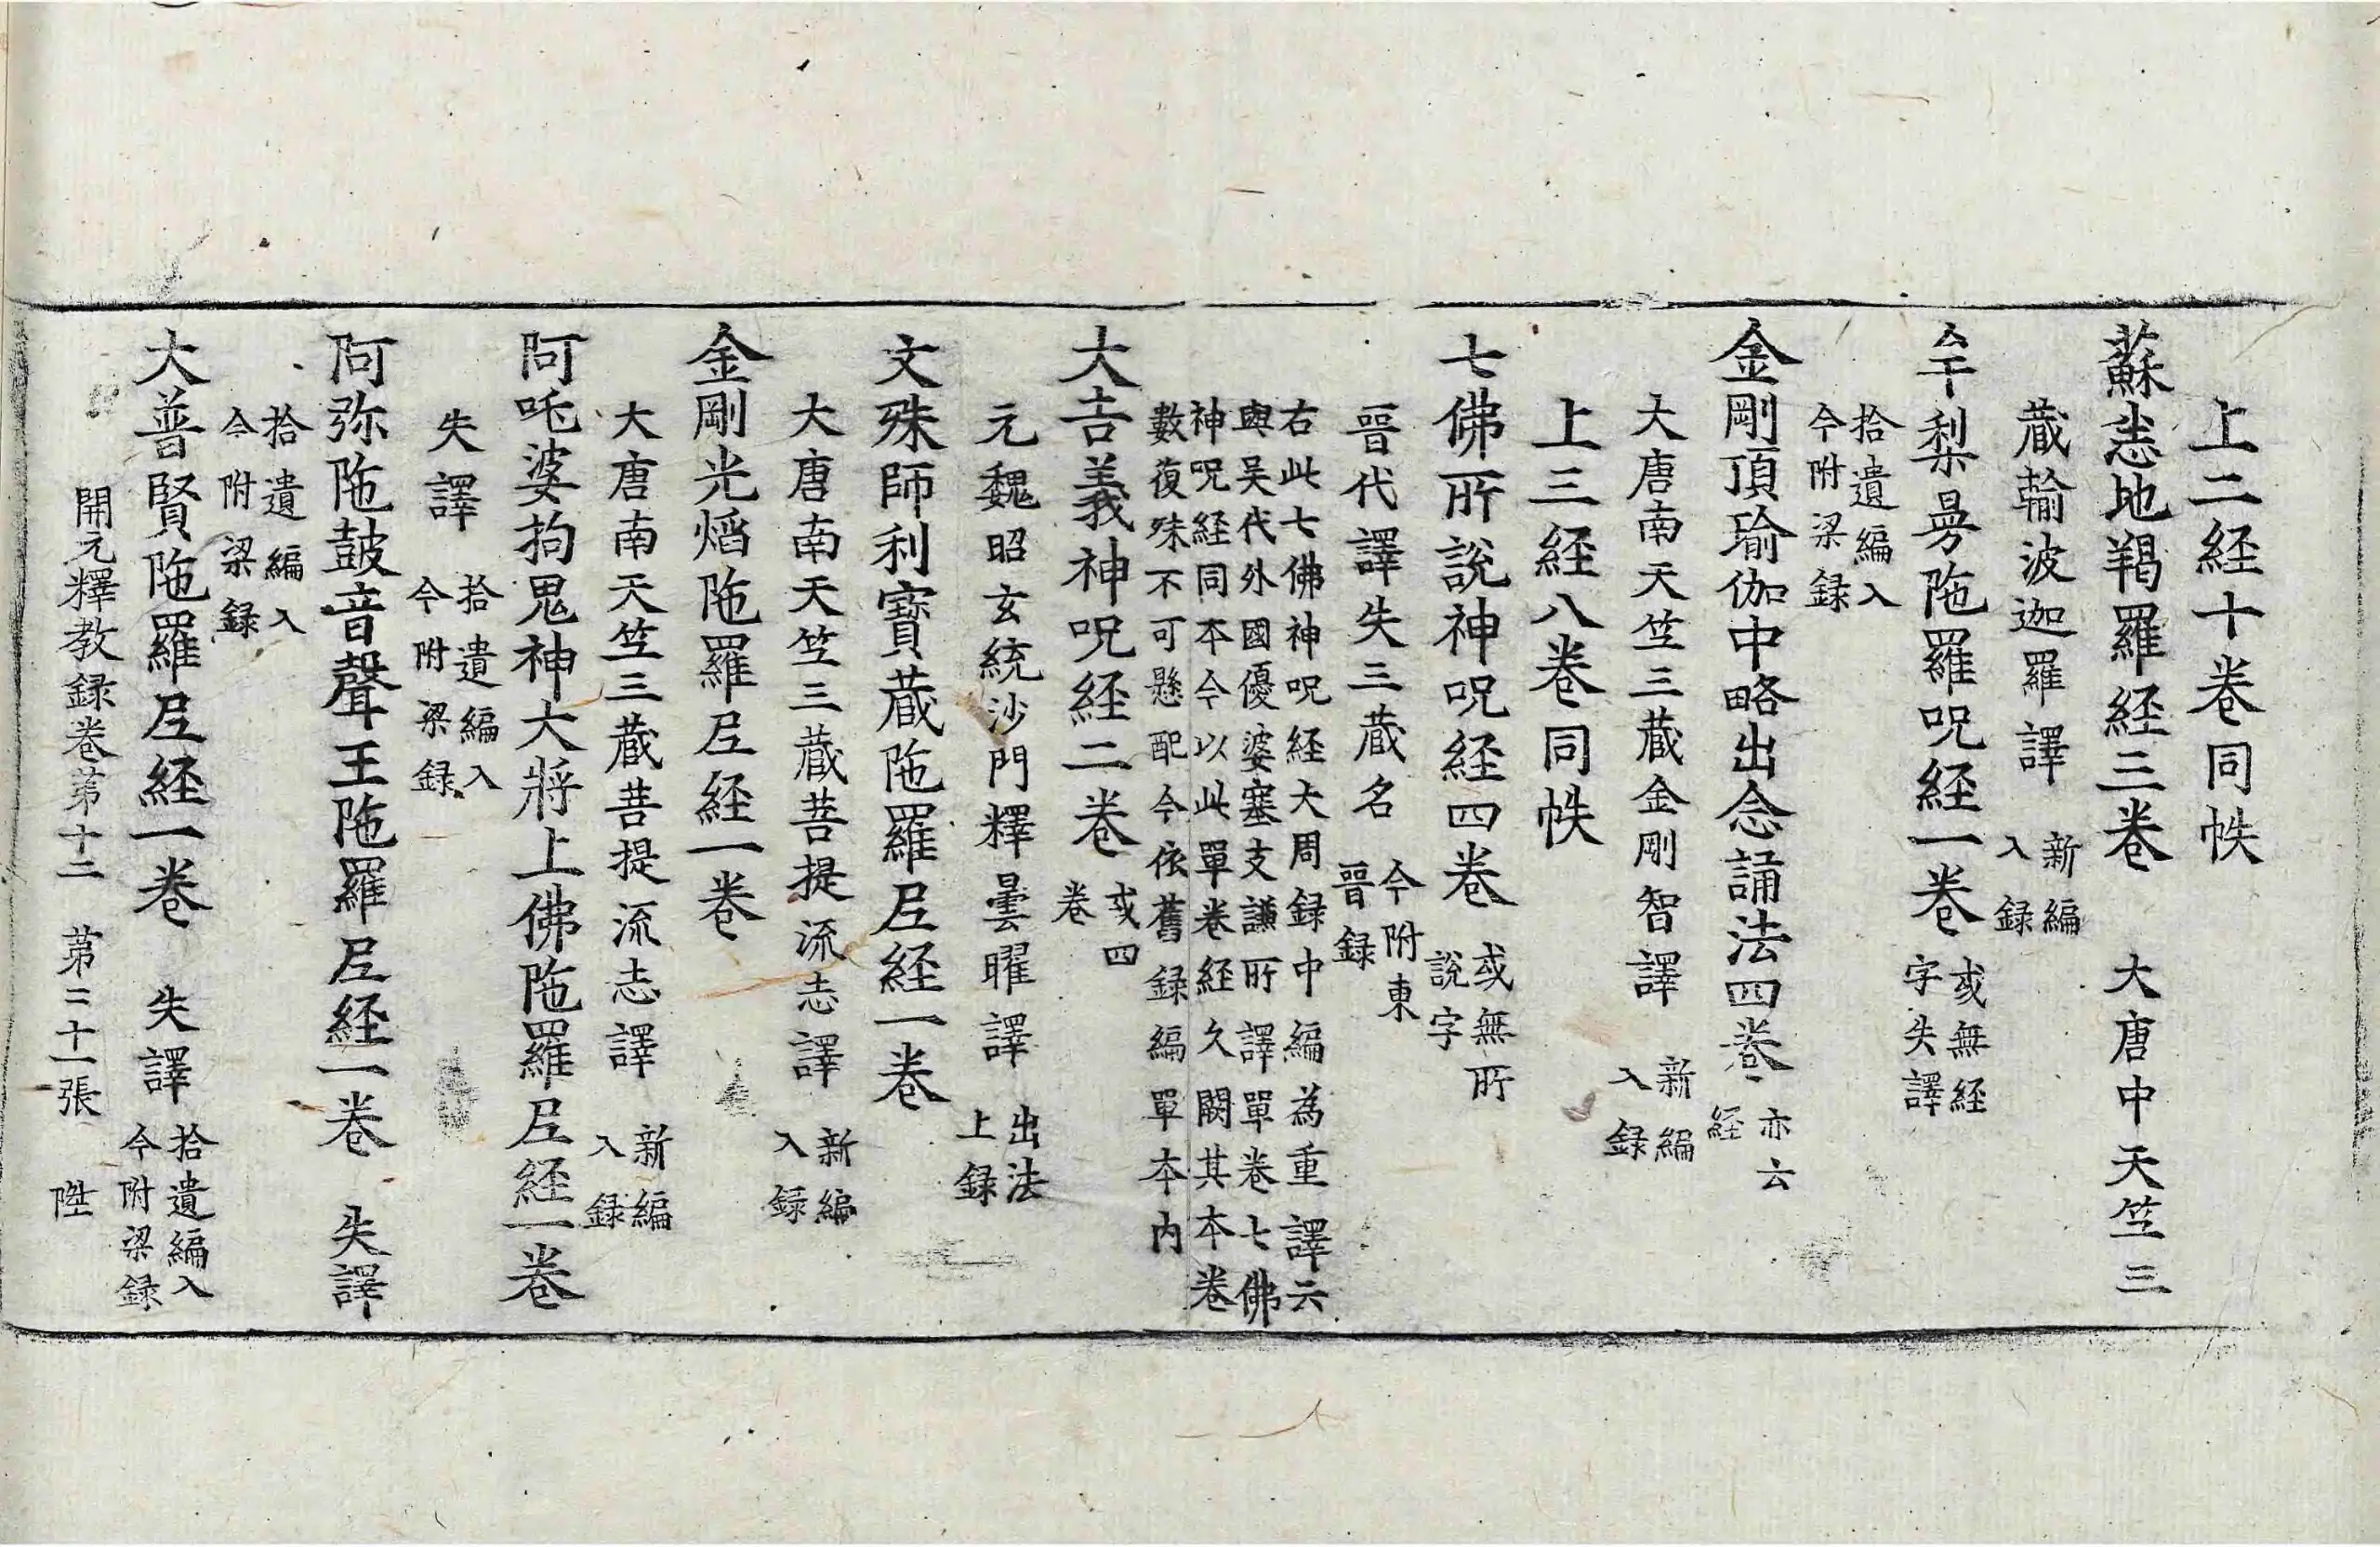 上二経十卷同帙
蘇悉地羯羅経三卷 大唐中天竺三
蔵輸波迦羅譯 新編
入録
牟梨曼陁羅呪経一卷 或無経
字失譯
拾遺編入
今附梁録
金剛頂瑜伽中略出念誦法四卷 亦云
経
大唐南天竺三蔵金剛智譯 新編
入録
上三経八卷同帙
七佛所說神呪経四卷 或無所
說字
晉代譯失三蔵名 今附東
晉録
右此七佛神呪経大周録中編為重譯云
與吴代外國優婆塞支謙所譯單卷七佛
神呪経同本今以此單卷経久闕其本卷
數復殊不可懸配今依舊録編單本内
大吉義神呪経二卷 或四
卷
元魏昭玄統沙門釋曇曜譯 出法
上録
文殊師利寶蔵陁羅尼経一卷
大唐南天竺三蔵菩提流志譯 新編
入録
金剛光焰陁羅尼経一卷
大唐南天竺三蔵菩提流志譯 新編
入録
阿吒婆拘鬼神大將上佛陁羅尼経一卷
失譯 拾遺編入
今附梁録
阿弥陁皷音聲王陁羅尼経一卷 失譯
拾遺編入
今附梁録
大普賢陁羅尼経一卷 失譯 拾遺編入
今附梁録
開元釋教録卷苐十二 苐二十一張 陞